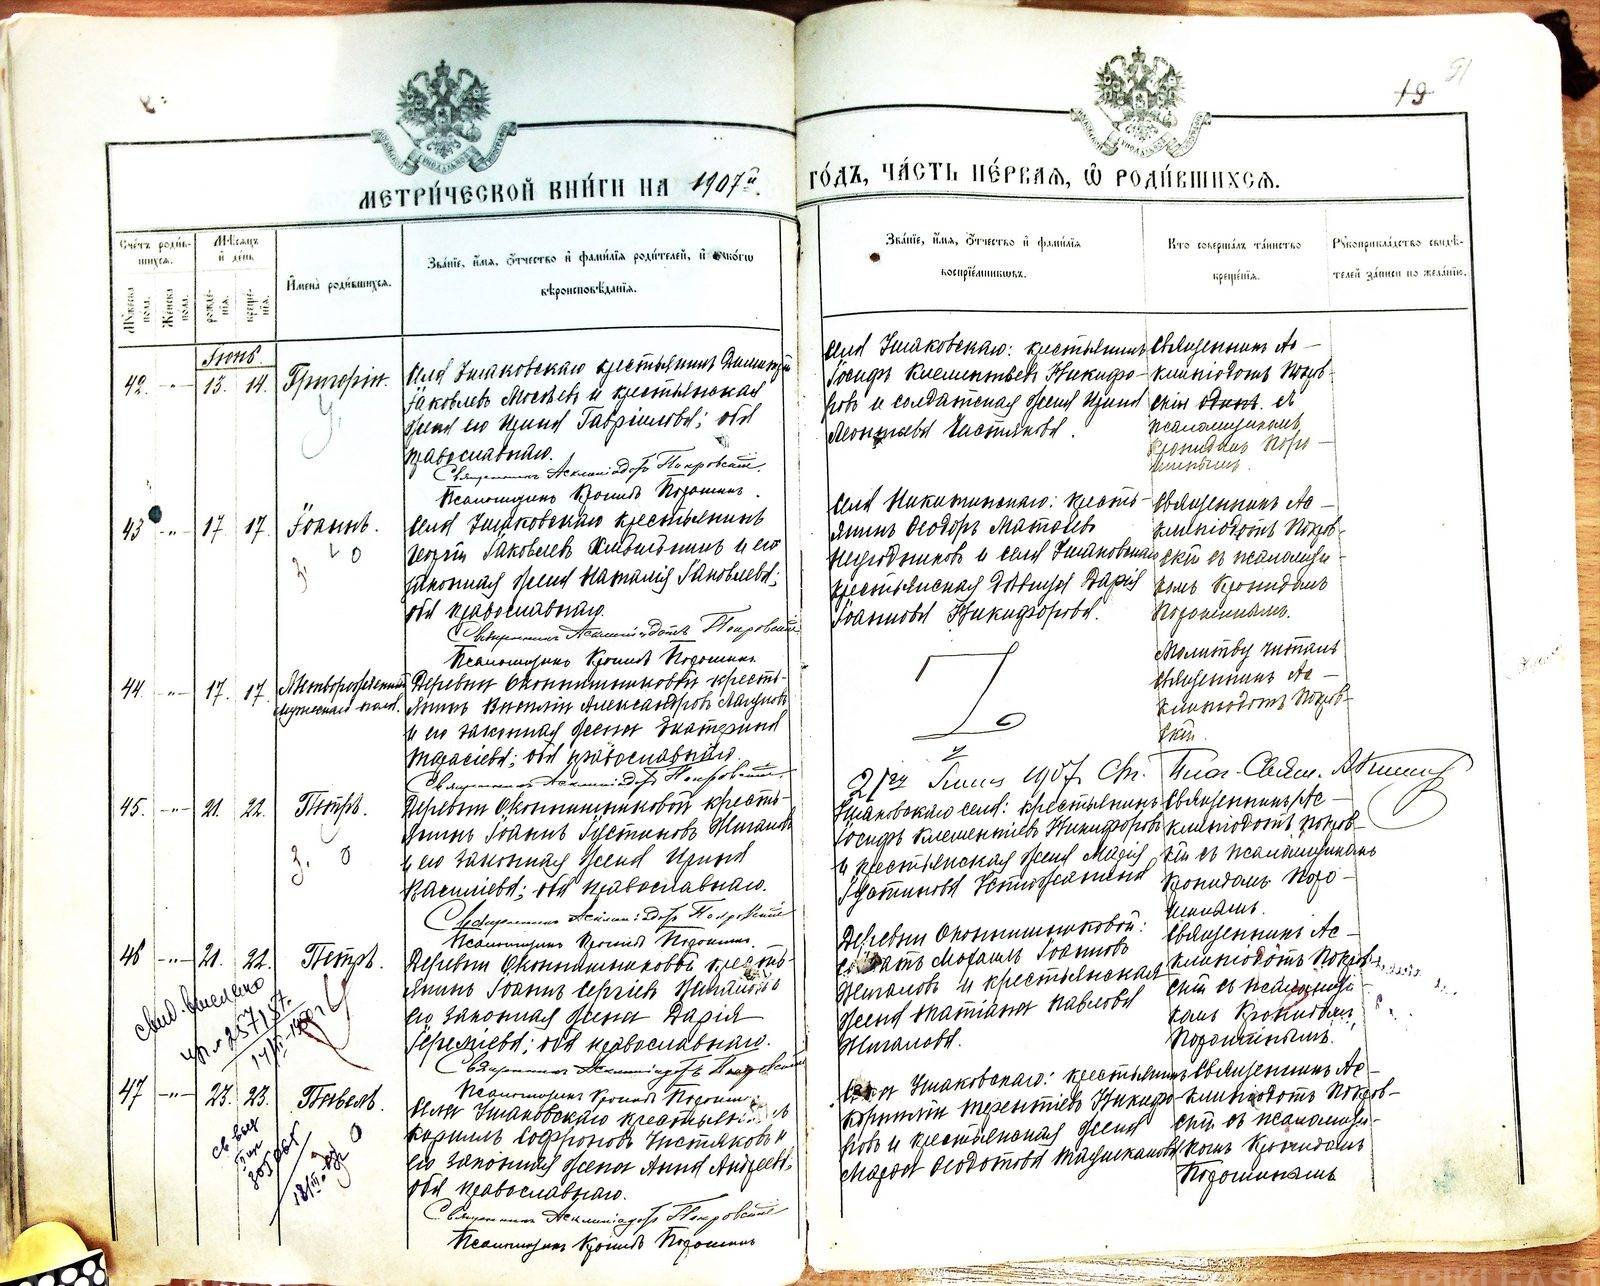 19
51
МЕТРИ́ЧЕСКОЙ КНИ́ГИ НА 1907й.
ГО́ДЪ, ЧА́СТЬ ПЕ́РВАЯ, Ѽ РОДИ́ВШИХСЯ.
Сче́тъ роди́в-
шихся.
Му́жеска пола.
Же́нска пола.
Мѣ́сяцъ
и́ де́нь
рожде́-
нїя.
креще́-
нїя.
И́мена̀ роди́вшихся.
Зва́нїе, и́мя, о́тчество и́ фами́лїя роди́телей, и́ како́гѡ
вѣроисповѣ́данїя.
Зва́нїе, и́мя, о́тчество и́ фами́лїя
воспрїе́мниковъ.
Кто̀ соверша́лъ та́инство
креще́нїя.
Рꙋкоприкла́дство свидѣ́-
телей за́писи по жела́нїю.
Іюнь
42. -"- 13. 14. Григорій.
Села Ушаковскаго крестьянинъ Димитрій
Іаковлевъ Мосѣевъ и крестьянская
жена его Ирина Гавріилова; оба
православнаго.
Священникъ Асклипіодотъ Покровскій.
Псаломщикъ Кронидъ Порошинъ.
Села Ушаковскаго: крестьянинъ
Іосифъ Клементьевъ Никифо-
ровъ и солдатская жена Ирина
Леонтьева Чистякова.
Священникъ Ас-
клипіодотъ Покров-
скій одинъ. съ
псаломщикомъ
Кронидомъ Поро-
шинымъ.
43 -"- 17 17. Іоаннъ.
Села Ушаковскаго крестьянинъ
Георгій Іаковлевъ и его
законная жена Наталія Іаковлева;
оба православнаго.
Священникъ Асклипіодотъ Покровскій
Псаломщикъ Кронидъ Порошинъ.
Села Никитинскаго: кресть-
янинъ Ѳеодоръ Матѳіевъ
и села Ушаковскаго
крестьянская дѣвица Дарія
Іоаннова Никифорова.
Священникъ Ас-
клипіодотъ Покров-
скій съ псаломщи-
комъ Кронидомъ
Порошинымъ.
44. -"- 17. 17. Мертворожденный
мужескаго пола.
Деревни Оконишниковой кресть-
янинъ Василій Александровъ
и его законная жена Екатерина
Тарасіева; оба православнаго.
Священникъ Асклипіодотъ Покровскій.
Молитву читалъ
Священникъ Ас-
клипіодотъ Покров-
скій.
21го Іюня 1907 Св. Благ. Свящ.
45. -"- 21. 22. Петръ.
Деревни Оконишниковой кресть-
янинъ Іоаннъ Іустиновъ Жигаловъ
и его законная жена Ирина
Василіева; оба православнаго.
Священникъ Асклипіодотъ Покровскій
Псаломщикъ Кронидъ Порошинъ.
Ушаковскаго села: крестьянинъ
Іосифъ Клементіевъ Никифоровъ
и крестьянская жена Марія
Іустинова
Священникъ Ас-
клипіодотъ Покров-
скій съ псаломщикомъ
Кронидомъ Поро-
шинымъ.
46 -"- 21. 22. Петръ.
Деревни Оконишниковой кресть-
янинъ Іоаннъ Сергіевъ Жигаловъ и
его законная жена Дарія
Іереміева; оба православнаго.
Священникъ Асклипіодотъ Покровскій
Псаломщикъ Кронидъ Порошинъ.
Деревни Оконишниковой:
солдатъ Іоанновъ
Жигаловъ и крестьянская
жена Татіана Павлова
Жигалова.
Священникъ Ас-
клипіодотъ Покров-
скій съ псаломщи-
комъ Кронидомъ
Порошинымъ.
47 -"- 23. 23. Павелъ.
Села Ушаковскаго крестьянинъ
Кириллъ Софроновъ Чистяковъ и
его законная жена Анна Андреева,
оба православнаго.
Священникъ Асклипіодотъ Покровскій
Псаломщикъ Кронидъ Порошинъ
Села Ушаковскаго: крестьянинъ
Корнилій Терентіевъ Никифо-
ровъ и крестьянская жена
Марѳа Ѳеодотова
Священникъ Ас-
клипіодотъ Покров-
скій съ псаломщи-
комъ Кронидомъ
Порошинымъ